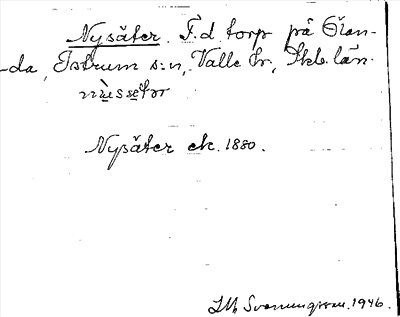 Nysäter. F.d. torp på Ölan-
-da, Istrum s:n, Valle hr, Skb. län.
Nysäter ek. 1880.
1946.